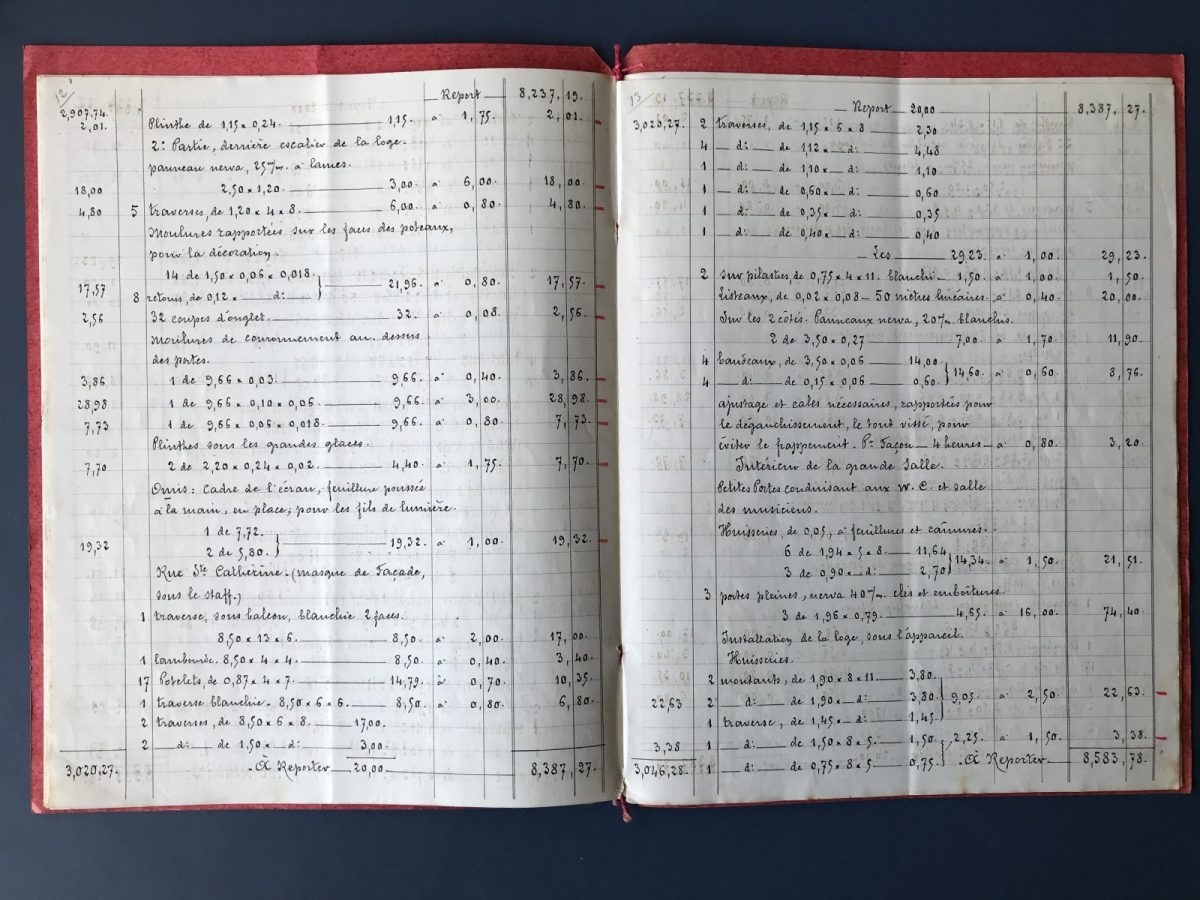 12
Report 8,237,19.
2,907,74.
2,01. Plinthe de 1,15 x 0,24. 1,15 à 1,75 2,01.
2: Partie, derrière escalier de la loge.
panneau nerva, 25 m/m. à lames.
18,00 2,50 x 1,20. 3,00 à 6,00. 18,00.
4,80 5 traverses, de 1,20 x 4 x 8. 6,00 à 0,80. 4,80.
Moulures rapportées sur les faces des poteaux,
pour la décoration.
14 de 1,50 x 0,06 x 0,018.
17,57 21,96. à 0,80. 17,57.
8 retours, de 0,12 x d:
2,56 32 coupes d'onglet. 32. à 0,08. 2,56.
Moulures de couronnement au dessus
des portes.
3,86 1 de 9,66 x 0,03. 9,66. à 0,40. 3,86.
28,98 1 de 9,66 x 0,10 x 0,06. 9,66. à 3,00. 28,98.
7,73 1 de 9,66 x 0,06 x 0,018. 9,66. à 0,80. 7,73.
Plinthes sous les grandes glaces.
7,70 2 de 2,20 x 0,24 x 0,02. 4,40. à 1,75. 7,70.
Omis: Cadre de l'écran, feuillure poussée
à la main, en place, pour les fils de lumière.
1 de 7,72.
19,32 2 de 5,80. 19,32. à 1,00. 19,32.
Rue Ste Catherine. (masque de façade,
sous le staff.)
1 traverse, sous balcon, blanchie 2 faces.
8,50 x 13 x 6. 8,50. à 2,00. 17,00.
1 lambourde. 8,50 x 4 x 4. 8,50. à 0,40. 3,40.
17 Potelets, de 0,87 x 4 x 7. 14,79. à 0,70. 10,35.
1 traverse blanchie. 8,50 x 6 x 6. 8,50. à 0,80. 6,80.
2 traverses, de 8,50 x 6 x 8. 17,00.
2 d: de 1,50 x d: 3,00.
3,020,27. A Reporter 20,00. 8,387,27.
13
Report 20,00 8,387,27.
3,020,27. 2 traverses, de 1,15 x 6 x 8 2,30
4 d: de 1,12 x d: 4,48
1 d: de 1,10 x d: 1,10
1 d: de 0,60 x d: 0,60
1 d: de 0,35 x d: 0,35
1 d: de 0,40 x d: 0,40
Les 29,23 à 1,00. 29,23.
2 sur pilastres, de 0,75 x 4 x 11. blanchi. 1,50. à 1,00. 1,50.
Listeaux, de 0,02 x 0,08 - 50 mètres linéaires. à 0,40. 20,00.
Sur les 2 côtés. Panneaux nerva, 20 m/m. blanchis.
2 de 3,50 x 0,27 7,00. à 1,70. 11,90.
4 bandeaux, de 3,50 x 0,06 14,00
14,60. à 0,60. 8,76.
4 d: de 0,15 x 0,06 0,60.
ajustage et cales nécessaires, rapportées pour
le dégauchissement, le tout vissé, pour
éviter le frappement. Pr. façon - 4 heures - à 0,80. 3,20.
Intérieur de la grande Salle.
Petites Portes conduisant aux W.C. et salle
des musiciens.
Huisseries, de 0,05, à feuillures et rainures.
6 de 1,94 x 5 x 8. 11,64
14,34. à 1,50. 21,51.
3 de 0,90 x d: 2,70
3 portes pleines, nerva 40 m/m. clés et emboîtures.
3 de 1,96 x 0,79. 4,65. à 16,00. 74,40.
Installation de la loge, sous l'appareil.
Huisseries.
2 montants, de 1,90 x 8 x 11. 3,80.
22,63 2 d: de 1,90 x d: 3,80 9,05. à 2,50. 22,63
1 traverse, de 1,45 x d: 1,45.
3,38 1 d: de 1,50 x 8 x 5. 1,50. 2,25. à 1,50. 3,38.
3,046,28. 1 d: de 0,75 x 8 x 5 0,75 A Reporter 8,583,78.